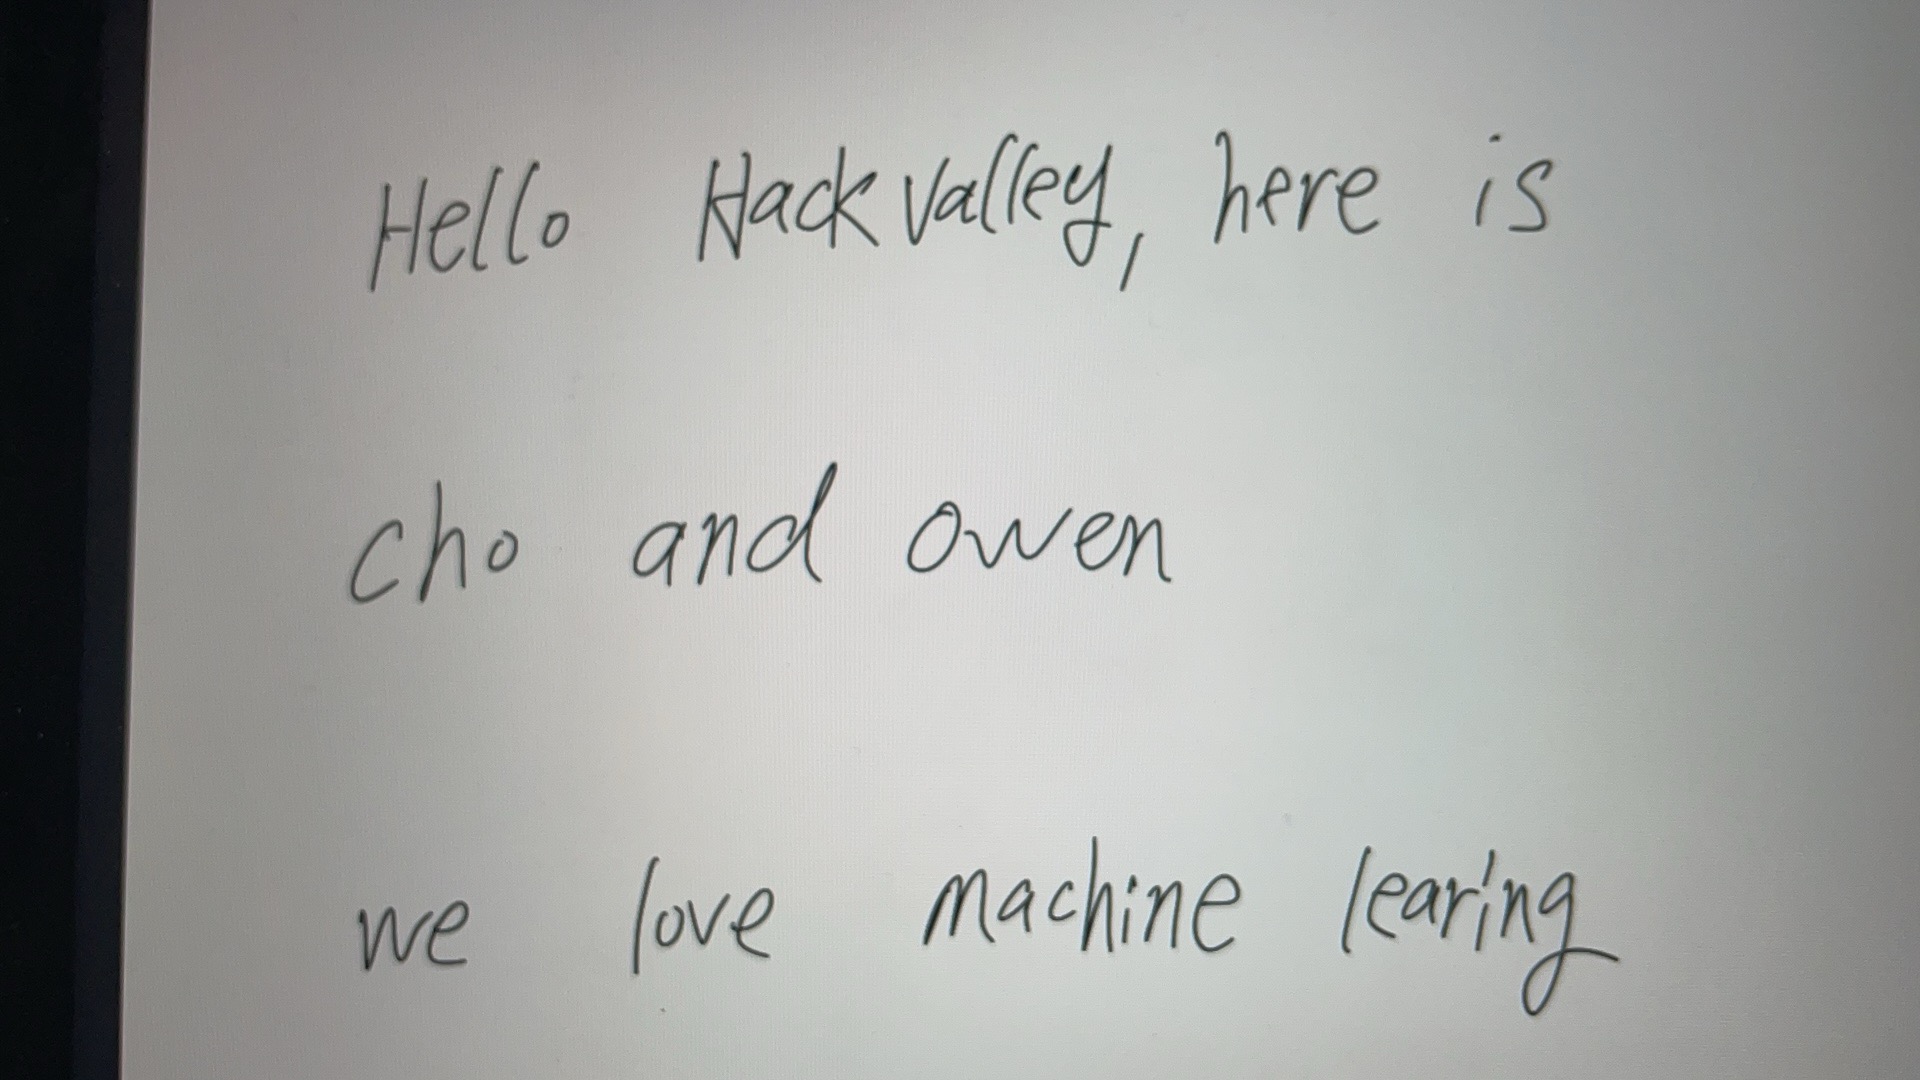 Hello Hack Valley, here is
cho and owen
we love machine learing